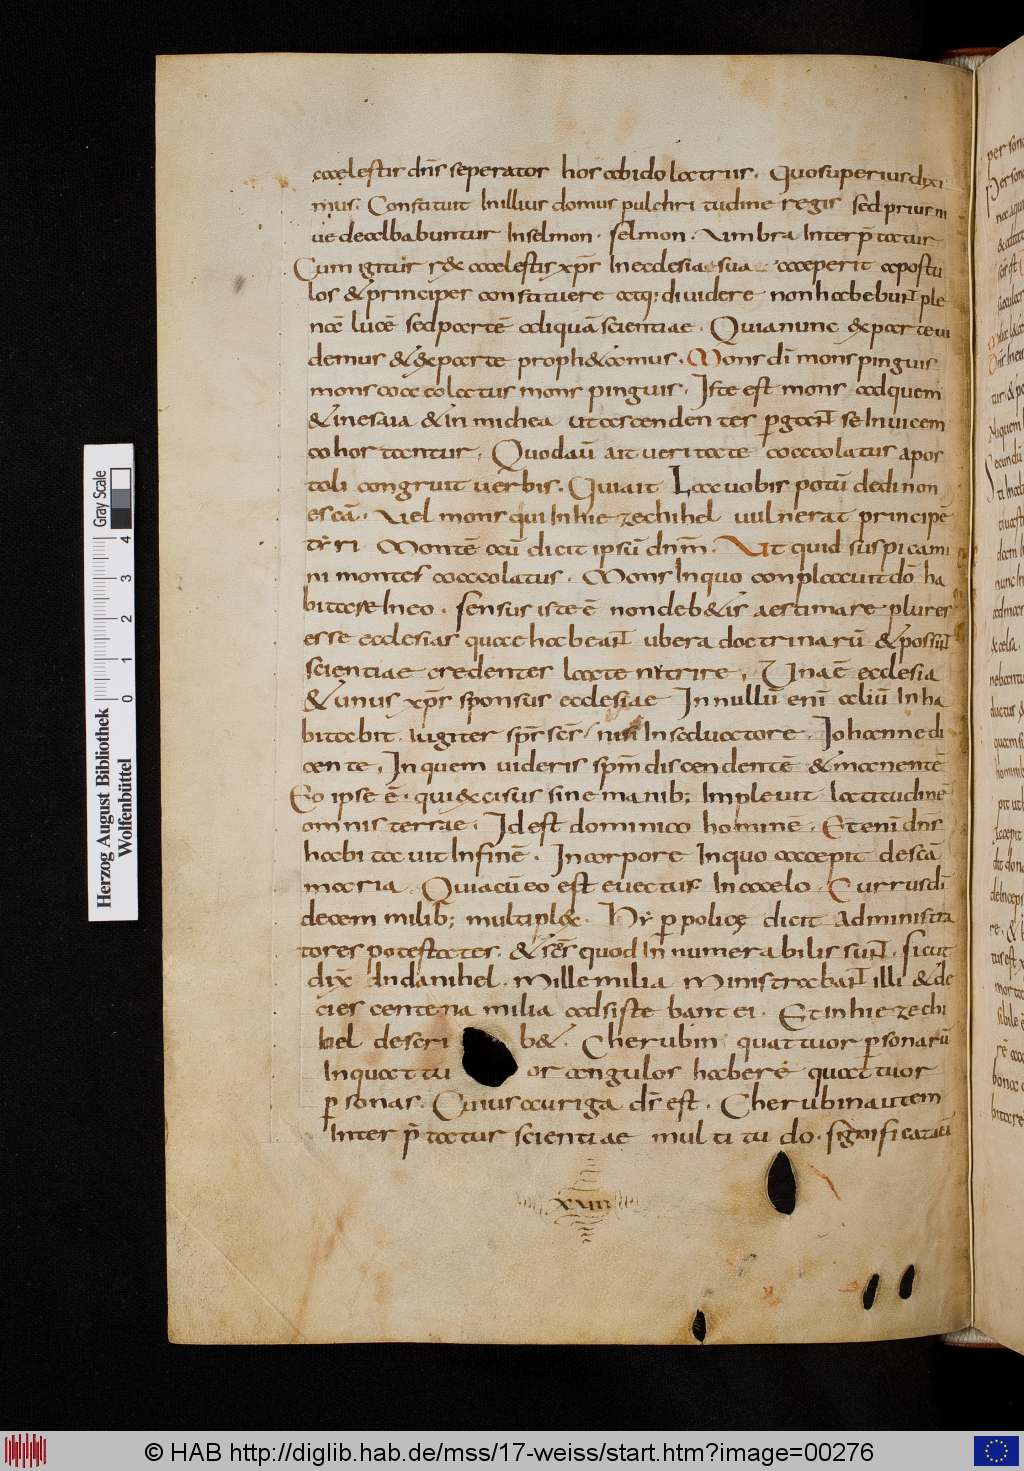 caelestis dns̄ seperator hos ab idolatris. Quos uperius dixi
mus. Constituit In illius domus pulchri tudine regis sed prius ni
ue dealbabuntur In selmon. selmon. umbra Interp̄tatur
Cum igitur r&x caelestis xp̄s In ecclesia sua acceperit aposto
los & principes constituere atq; diuidere non habebunt ple
nā lucē sed partē aliquā scientiae. Quia nunc ex parte ui
demus & ex parte proph&amus. Mons dī mons pinguis
mons coaccolatus mons pinguis. Iste est mons ad quem
& in esaia & in michea ut ascendentes p̱gant se Inuicem
cohortantur. Quod aū ait ueritate coaccolatus apos
toli congruit uerbis. Qui ait Lac uobis potū dedi non
escā. Uel mons qui In hiezechihel uulnerat principē
tyri. Montē aū dicit ipsū dnm̄. Ut quid suspicami
ni montes coaccolatus. Mons In quo conplacuit dō ha
bitare In eo. sensus iste ē non deb&is aestimare plures
esse ecclesias quae habeant ubera doctrinarū & possint
scientiae credentes lacte nutrire. Una ē ecclesia
& unus xp̄s sponsus ecclesiae In nullū enī aliū Inha
bitabit iugiter sp̄s scs̄ nisi In saluatore. Iohanne di
cente. In quem uideris spm̄ discendentē & manentē
Eo ipse ē. qui excisus sine manib; Impleuit latitudinē
omnis terrae. Id est dominico hominē. Et enī dns̄
habitauit In finē. In corpore In quo accepit de scā
maria. Quia cū eo est euectus In caelo. Currus dī
decem milib; multiplex. Hy p̱ policę dicit administra
tores potestates. & scs̄ quod In numerabilis sunt. sicut
dix̄ In danihel. Mille milia ministrabant illi & de
cies centena milia adsiste bant ei. Et in hiezechi
hel descri b&. Cherubin quattuor p̱sonarū
In quattu or angulos habere quattuor
p̱sonas. Cuius auriga ds̄ est. Cherubin autem
Interp̄tatur scientiae multi tu do. significat
xviii
per sona
Herzog August Bibliothek
Wolfenbüttel
0 1 2 3 4
Gray Scale
© HAB http://diglib.hab.de/mss/17-weiss/start.htm?image=00276